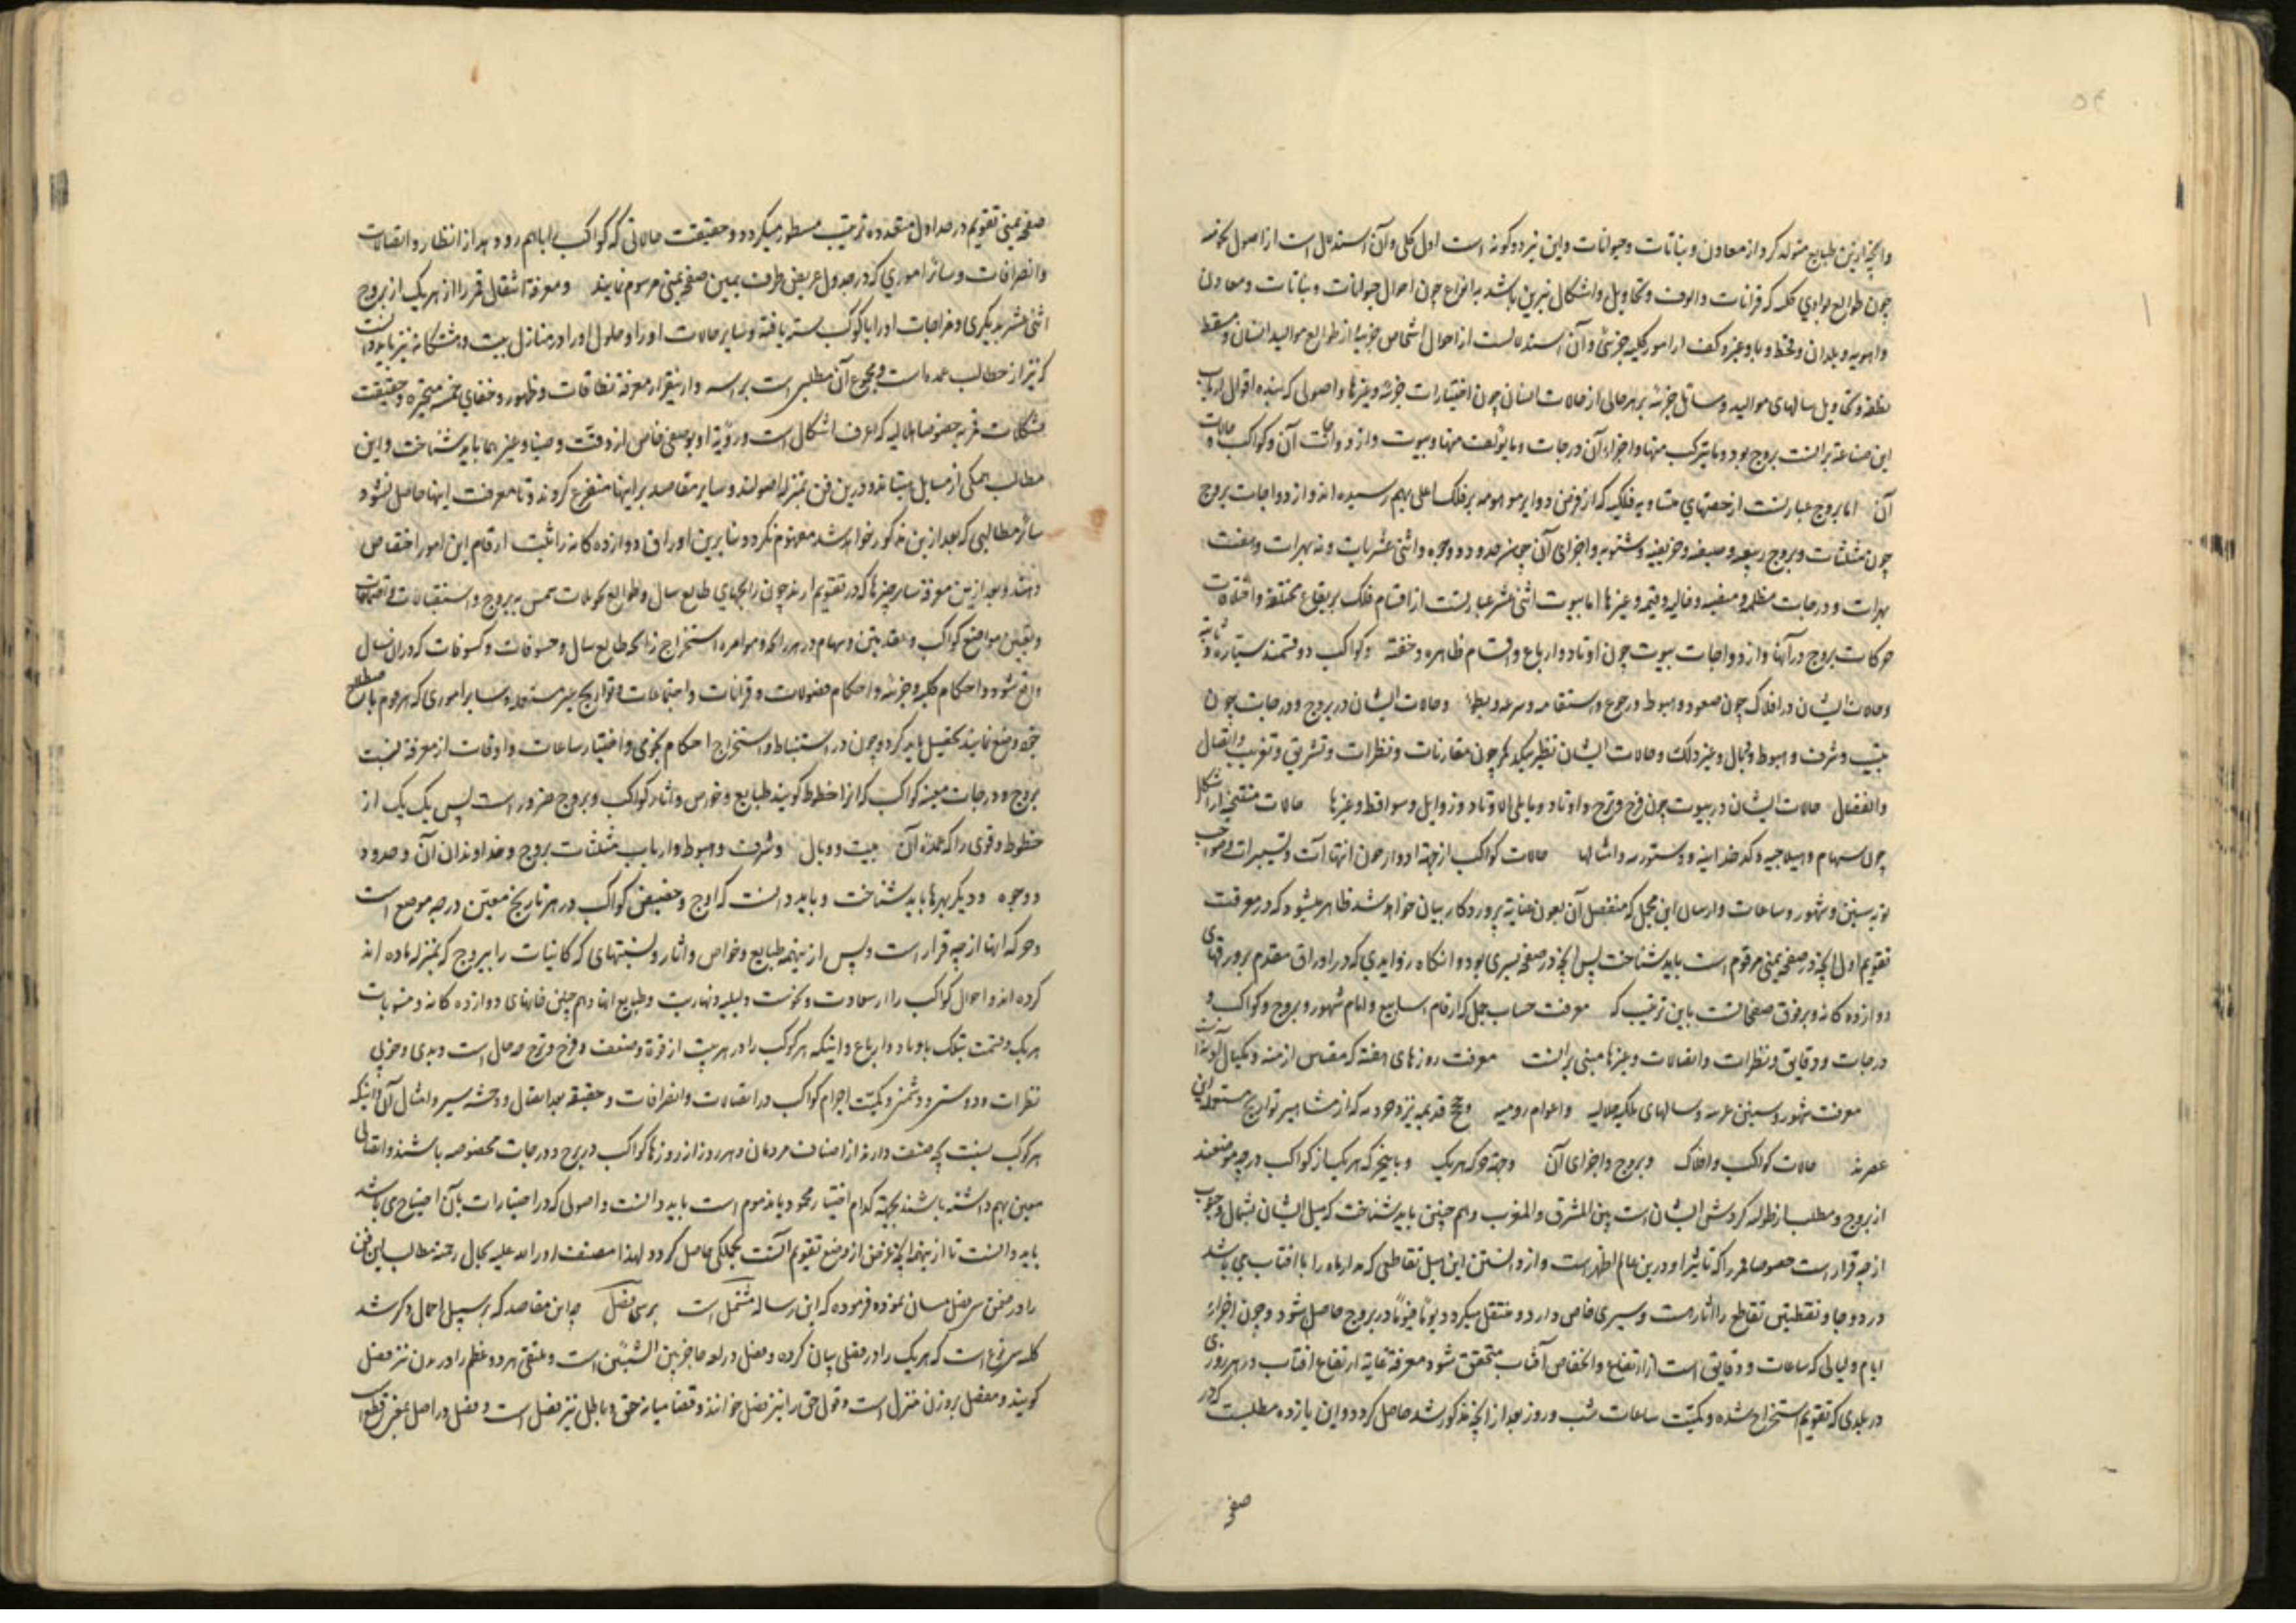 وانچه ازین طبایع متولد کردد از معادن و نباتات و حیوانات و این نیز دو کونه است اول کلی و آن استدلال است از اصول
چون طوالع بوادی کلیه که قرانات و الوف و تحاویل و اشکال نیرین باشد بر انواع چون احوال حیوانات و نباتات و معادن
و اهویه و بلدان و قحط و وبا و غیره و کفت از امور کلیه جزئی و آن استدلالست از احوال اشخاص جزییه از طوالع موالید انسان و مسقط
نطفه و تحاویل سالهای موالید و مسائل جزئیه بر هر حالی از حالات انسان چون اختیارات جزئیه و غیرها و اصولی که بنده اقوال ارباب
این صناعة برانست بروج بود و ما یترکب منها و اجزاء آن درجات و ما یؤلف منها و بیوت و ازدواجات آن و کواکب و حالات
آن اما بروج عبارتست از حصتهای متساویه فلکیه که از فرض دوایر موهومه بر فلک اعلی بهم رسیده اند و ازدواجات بروج
چون مثلثات و بروج ربیعیه و صیفیه و خریفیه و شتویه و اجزای آن چون حدود و وجوه و اثنی عشریات و نه بهرات و هفت
بهرات و درجات مظلمه و مضیئه و خالیه و قیمه و غیرها اما بیوت اثنی عشر عبارتست از اقسام فلک بر بقاع مختلفه و اختلافات
حرکات بروج در آنها و ازدواجات بیوت چون اوتاد و ارباع و اقسام ظاهره و خفیه و کواکب دو قسمند سیاره و ثابته
و حالات ایشان در افلاک چون صعود و هبوط و رجوع و استقامه و سرعه و بطوء و حالات ایشان در بروج و درجات چون
بیت و شرف و هبوط و وبال و غیر ذلک و حالات ایشان نظر بیکدیکر چون مقارنات و نظرات و تشریق و تغریب و اتصال
و انفصال حالات ایشان در بیوت چون فرح و ترح و اوتاد و مایلی الاوتاد و زوایل و سواقط و غیرها حالات منتقیه از اشکال
چون سهام و هیلاجیه و کدخدائیه و دستوریه و امثالها حالات کواکب از جهة ادوار چون انتهاآت و تسییرات و مواجب
نوبه سنین و شهور و ساعات و ارسال این مجمل که منفصل آن بعون عنایة پروردکار بیان خواهد شد ظاهر میشود که در معرفت
تقویم اول انچه در صفحه یمنی مرقوم است باید شناخت پس انچه در صفحه یسری بود و انکاه زوایدی که در اوراق مقدم بر ورقهای
دوازده کانه و بر فوق صفحاتست باین ترتیب که معرفت حساب جمل که ارقام اسابیع و ایام شهور و بروج و کواکب و
درجات و دقایق و نظرات و اتصالات و غیرها مبنی برانست معرفت روزهای هفته که مقیاس ازمنه و مکیال
معرفت شهور و سنین عربیه و سالهای ملکیه جلالیه و اعوام رومیه و حج قدیمیه یزدجردیه که از مشاهیر تواریخ مستعمله این
عصرند حالات کواکب و افلاک و بروج و اجزای آن وجهة حرکة هریک و باینچیز که هریک از کواکب در چه موضعند
از بروج و مطلب از طوله کردش ایشان است بین المشرق و المغرب و هم چنین باید شناخت که میل ایشان بشمال و جنوب
از چه قرار است خصوصا قمر را که تاثیر او درین عالم اظهر است و از دانستن این میل تقاطعی که مدار ماه را با افتاب می باشد
در دو جا و نقطتین تقاطع را آثار است و سیری خاص دارد و منتقل میکردد یوما فیوما در بروج حاصل شود و چون اجزاء
ایام و لیالی که ساعات و دقایق است از ارتفاع و انخفاض آفتاب متحقق شود معرفة غایة ارتفاع افتاب در هر روزی
در بلدی که تقویم استخراج شده و کمیت ساعات شب و روز بعد از انچه مذکور شد حاصل کردد و این یازده مطلبست که در
صفحه
صفحه یمنی تقویم در جداول متعدده بترتیب مسطور میکردد و حقیقت حالاتی که کواکب را باهم رو دهد از انظار و اتصالات
و انصرافات و سائر اموری که در جدول عریض طرف یمین صفحه یمنی مرسوم نمایند و معرفة انتقال قمر را از هریک از بروج
اثنی عشر بدیکری و مزاجات او را با کواکب سته باقیه و سایر حالات او را و حلول او را در منازل بیست و هشتکانه نیز باید دانست
که نیز از مطالب عمده است و مجموع آن مطلبی است براسه و ازینقرار معرفة نطاقات و ظهور و خفای خمسه متحیره و حقیقت
تشکلات قمریه خصوصا هلالیه که اعرف اشکال است و رؤیة او بوصفی خاص از دقت و ضیاء و غیرهما باید شناخت و این
مطالب همکی از مسایل میباشد و درین فن بمنزله اصولند و سایر مقاصد بر اینها متفرع کردند و تا معرفت اینها حاصل نشود
سائر مطالبی که بعد ازین مذکور خواهد شد مفهوم نکردد و بنابرین اوراق دوازده کانه را بثبت ارقام این امور اختصاص
دهند و بعد ازین معرفة سایر چیزها که در تقویم ارند چون زایجهای طالع سال و طوالع تحویلات شمس به بروج و استقبالات و اجتماعات
و تعیین مواضع کواکب و عقدتین و سهام در هر زایچه و مؤامره استخراج زایچه طالع سال و خسوفات و کسوفات که در ان سال
واقع شود و احکام کلیه و جزئیه و احکام فصولات و قرانات و اجتماعات و تواریخ غیر مستعمله و سایر اموری که مرقوم
وضع نمایند تحصیل باید کرد و چون در استنباط و استخراج احکام نجومی و اختیار ساعات و اوقات از معرفة نسبت
بروج و درجات معینه کواکب که انرا حظوظ کویند طبایع و خواص و آثار کواکب و بروج ضرور است پس یک یک از
حظوظ و قوی را که عمده آن بیت و وبال و شرف و هبوط و ارباب مثلثات بروج و خداوندان آن و حدود
و وجوه و دیکر بهرها باید شناخت و باید دانست که اوج و حضیض کواکب در هر تاریخ معین در چه موضع است
و حرکه انها از چه قرار است و پس ازینهمه طبایع و خواص و اثار و نسبتهای که کاینات را ببروج که بمنزله ماده اند
کرده اند و احوال کواکب را از سعادت و نحوست و لیلیه و نهاریت و طبایع انها و هم چنین خانهای دوازده کانه و منسوبات
هریک و قسمت بتلک باوتاد و ارباع و اینکه هر کوکب را در هر بیت از قوة و ضعف و فرح و ترح چه حال است و بدی و خوبی
نظرات و دوستی و دشمنی و کمیت اجرام کواکب در اتصالات و انصرافات و حقیقه بعد اتصال و وحشه سیر و امثال آن و اینکه
هر کوکب نسبت بچه صنف دارند از اصناف مردمان و هر روز از روزها کواکب در برج و درجات مخصوصه باشند و اتصالی
معین بهم داشته باشند بجهة کدام اختیار محمود یا مذموم است باید دانست و اصولی که در اختیارات بآن احتیاج می باشد
باید دانست تا از ینهمه انچه غرض از وضع تقویم آنست بجملکی حاصل کردد لهذا مصنف نور الله علیه بکمال رحمة مطالب این فن
را در ضمن سی فصل بیان نموده فرموده که این رساله مشتمل است برسی فصل چه این مقاصد که بر سبیل اجمال ذکر شد
کلیه سی نوع است که هریک را در فصلی بیان کرده و فصل در لغة حاجز بین الشیئین است و ملتقی هر دو عظم را در بدن نیز فصل
کویند و مفصل بر وزن منزل است و قول حق را نیز فصل خوانند و قضا میانه حق و باطل نیز فصل است و فصل در اصل بمعنی قطع است